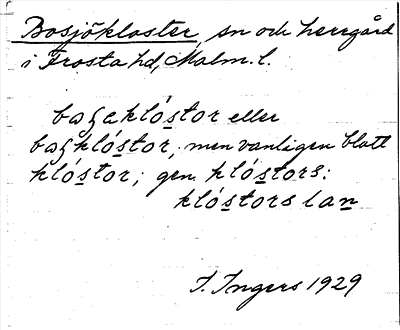 Bosjökloster, sn och herrgård
i Frosta hd, Malm. l.
klóstor eller
klóstor, men vanligen blott
klóstor; gen. klóstors:
klóstors lan
I. Ingers 1929